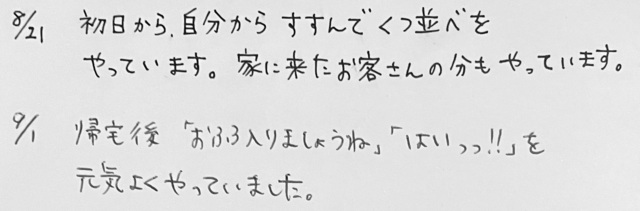 8/21 初日から、自分からすすんでくつ並べを
やっています。家に来たお客さんの分もやっています。
9/1 帰宅後「おふろ入りましょうね」「はいっっ!!」を
元気よくやっていました。